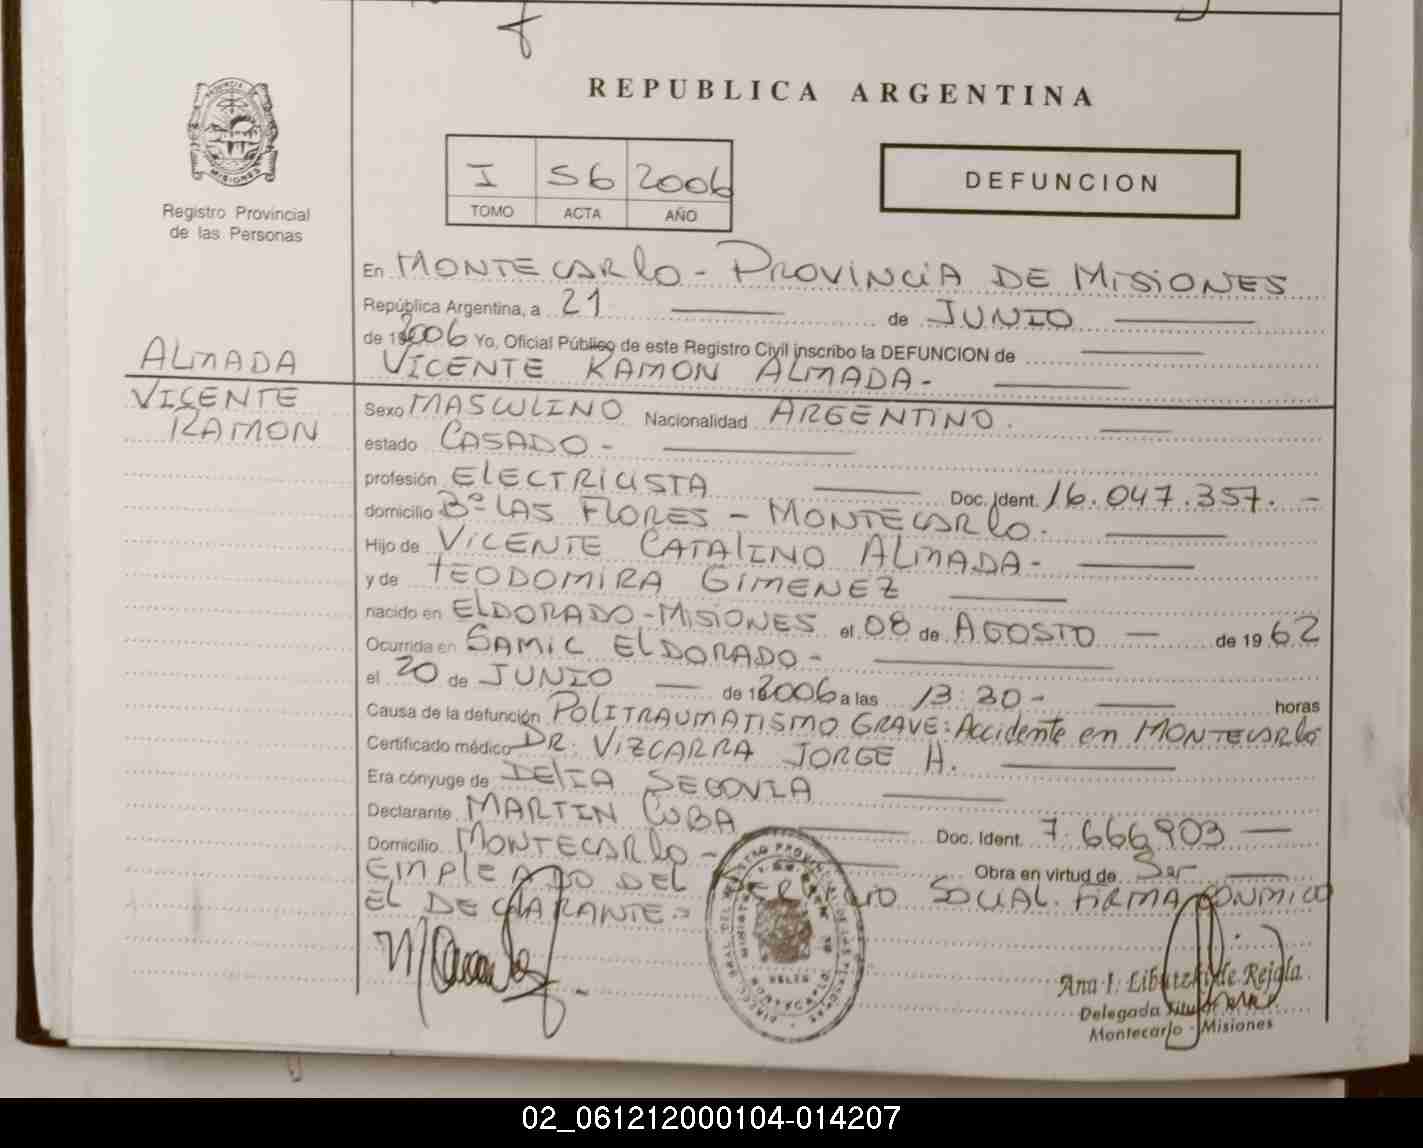 REPUBLICA ARGENTINA
MISIONES
Registro Provincial
de las Personas
I 56 2006
TOMO ACTA AÑO
DEFUNCION
En MONTECARLO - PROVINCIA DE MISIONES
República Argentina, a 21 de JUNIO
de 2006 Yo, Oficial Público de este Registro Civil inscribo la DEFUNCION de
VICENTE RAMON ALMADA-
ALMADA
VICENTE
RAMON
Sexo MASCULINO Nacionalidad ARGENTINO.
estado CASADO-
profesión ELECTRICISTA Doc. Ident. 16.047.357.-
domicilio Bº LAS FLORES - MONTECARLO.
Hijo de VICENTE CATALINO ALMADA-
y de TEODOMIRA GIMENEZ
nacido en ELDORADO-MISIONES el 08 de AGOSTO - de 1962
Ocurrida en SAMIC ELDORADO-
el 20 de JUNIO de 2006 a las 13:30- horas
Causa de la defunción POLITRAUMATISMO GRAVE: Accidente en MONTECARLO
Certificado médico DR. VIZCARRA JORGE H.
Era cónyuge de DELIA SEGOVIA
Declarante MARTIN CUBA Doc. Ident. 7.666903
Domicilio MONTECARLO - Obra en virtud de Ser
EMPLEADO DEL SERVICIO SOCIAL. FIRMA CONMIGO
EL DECLARANTE-
Ana I. de Rejala
Delegada Titular
Montecarlo - Misiones
02_061212000104-014207